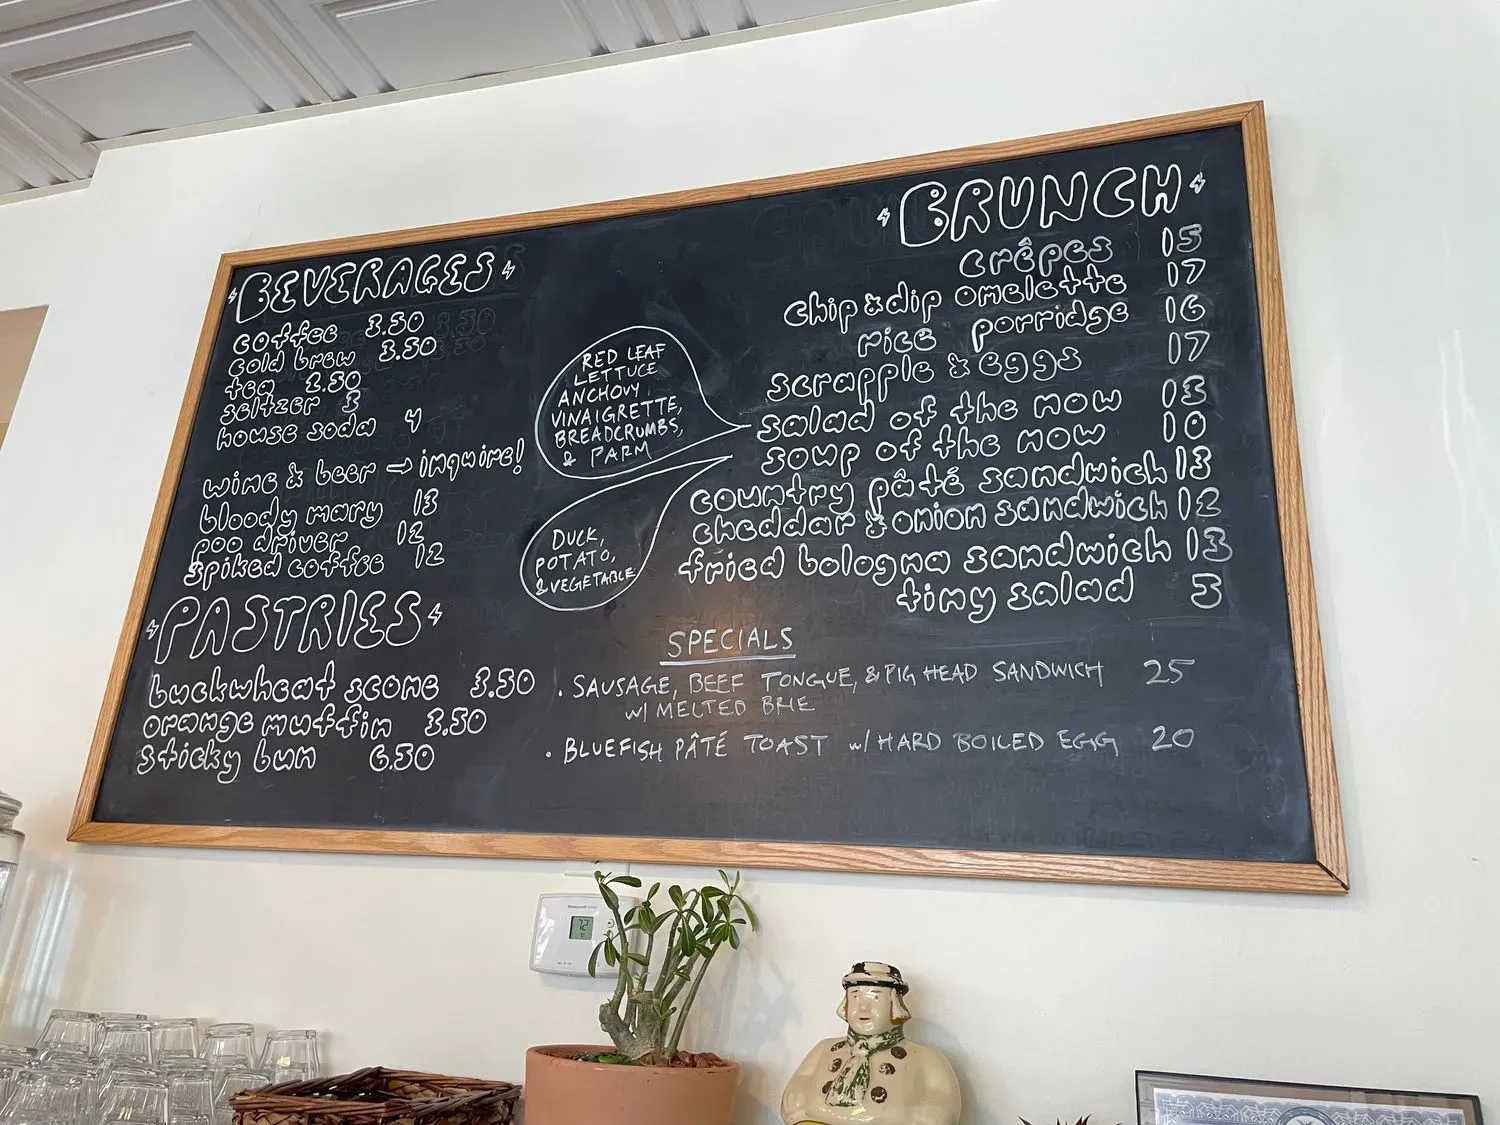 BEVERAGES
coffee 3.50
cold brew 3.50
tea 2.50
seltzer 3
house soda 4
wine & beer → inquire!
bloody mary 13
poo driver 12
spiked coffee 12
PASTRIES
buckwheat scone 3.50
orange muffin 3.50
sticky bun 6.50
RED LEAF
LETTUCE
ANCHOVY
VINAIGRETTE,
BREADCRUMBS,
& PARM
DUCK,
POTATO,
& VEGETABLE
BRUNCH
crêpes 15
chip & dip omelette 17
rice porridge 16
scrapple & eggs 17
salad of the now 13
soup of the now 10
country pâté sandwich 13
cheddar & onion sandwich 12
fried bologna sandwich 13
tiny salad 5
SPECIALS
· SAUSAGE, BEEF TONGUE, & PIG HEAD SANDWICH 25
W/ MELTED BRIE
· BLUEFISH PÂTÉ TOAST W/ HARD BOILED EGG 20
Honeywell
72